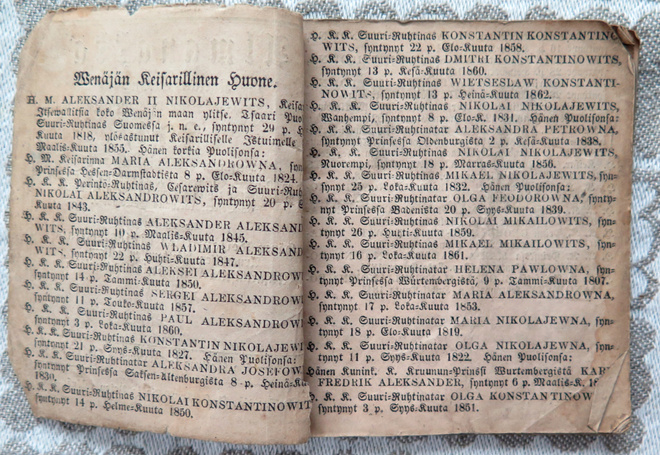 Wenäjän Keisarillinen Huone.
H. M. ALEKSANDER II NIKOLAJEWITS, Keisa
Itsewaltias koko Wenäjän maan ylitse. Tsaari Puo
Suuri-Ruhtinas Suomessa j. n. e., syntynyt 29 p. H
Kuuta 1818, ylösastunut Keisarilliselle Istuimelle
Maalis-Kuuta 1855. Hänen korkia Puolisonsa:
H. M. Keisarinna MARIA ALEKSANDROWNA, syn
Prinsessa Hessen-Darmstadtista 8 p. Elo-Kuuta 1824.
H. K. K. Perintö-Ruhtinas, Cesarewits ja Suuri-Ruh
NIKOLAI ALEKSANDROWITS, syntynyt 20 p. S
Kuuta 1843.
H. K. K. Suuri-Ruhtinas ALEKSANDER ALEKSAN
WITS, syntynyt 10 p. Maalis-Kuuta 1845.
H. K. K. Suuri-Ruhtinas WLADIMIR ALEKSAN
WITS, syntynyt 22 p. Huhti-Kuuta 1847.
H. K. K. Suuri-Ruhtinas ALEKSEI ALEKSANDROWI
syntynyt 14 p. Tammi-Kuuta 1850.
H. K. K. Suuri-Ruhtinas SERGEI ALEKSANDROW
syntynyt 11 p. Touko-Kuuta 1857.
H. K. K. Suuri-Ruhtinas PAUL ALEKSANDROW
syntynyt 3 p. Loka-Kuuta 1860.
H. K. K. Suuri-Ruhtinas KONSTANTIN NIKOLAJEW
syntynyt 21 p. Syys-Kuuta 1827. Hänen Puolisonsa:
H. K. K. Suuri-Ruhtinatar ALEKSANDRA JOSEFOW
syntynyt Prinsessa Saksen-Altenburgista 8 p. Heinä-Ku
1830.
H. K. K. Suuri-Ruhtinas NIKOLAI KONSTANTINOWIT
syntynyt 14 p. Helme-Kuuta 1850.
H. K. K. Suuri-Ruhtinas KONSTANTIN KONSTANTINO
WITS, syntynyt 22 p. Elo-Kuuta 1858.
H. K. K. Suuri-Ruhtinas DMITRI KONSTANTINOWITS,
syntynyt 13 p. Kesä-Kuuta 1860.
H. K. K. Suuri-Ruhtinas WIETSESLAW KONSTANTI-
NOWITS, syntynyt 13 p. Heinä-Kuuta 1862.
H. K. K. Suuri-Ruhtinas NIKOLAI NIKOLAJEWITS,
Wanhempi, syntynyt 8 p. Elo-K. 1831. Hänen Puolisonsa:
H. K. K. Suuri-Ruhtinatar ALEKSANDRA PETROWNA,
syntynyt Prinsessa Oldenburgista 2 p. Kesä-Kuuta 1838.
H. K. K. Suuri-Ruhtinas NIKOLAI NIKOLAJEWITS,
Nuorempi, syntynyt 18 p. Marras-Kuuta 1856.
H. K. K. Suuri-Ruhtinas MIKAEL NIKOLAJEWITS,
syntynyt 25 p. Loka-Kuuta 1832. Hänen Puolisonsa:
H. K. K. Suuri-Ruhtinatar OLGA FEODOROWNA, syn-
tynyt Prinsessa Badenista 20 p. Syys-Kuuta 1839.
H. K. K. Suuri-Ruhtinas NIKOLAI MIKAILOWITS, syn-
tynyt 26 p. Huhti-Kuuta 1859.
H. K. K. Suuri-Ruhtinas MIKAEL MIKAILOWITS, syn-
tynyt 16 p. Loka-Kuuta 1861.
H. K. K. Suuri-Ruhtinatar HELENA PAWLOWNA, syn-
tynyt Prinsessa Würtenbergistä, 9 p. Tammi-Kuuta 1807.
H. K. K. Suuri-Ruhtinatar MARIA ALEKSANDROWNA,
syntynyt 17 p. Loka-Kuuta 1853.
H. K. K. Suuri-Ruhtinatar MARIA NIKOLAJEWNA, syn-
tynyt 18 p. Elo-Kuuta 1819.
H. K. K. Suuri-Ruhtinatar OLGA NIKOLAJEWNA, syn-
tynyt 11 p. Syys-Kuuta 1822. Hänen Puolisonsa:
Hänen Kunink. K. Kruunun-Prinssi Wurtembergistä KAR
FREDRIK ALEKSANDER, syntynyt 6 p. Maalis-K. 18
H. K. K. Suuri-Ruhtinatar OLGA KONSTANTINOW
syntynyt 3 p. Syys-Kuuta 1851.